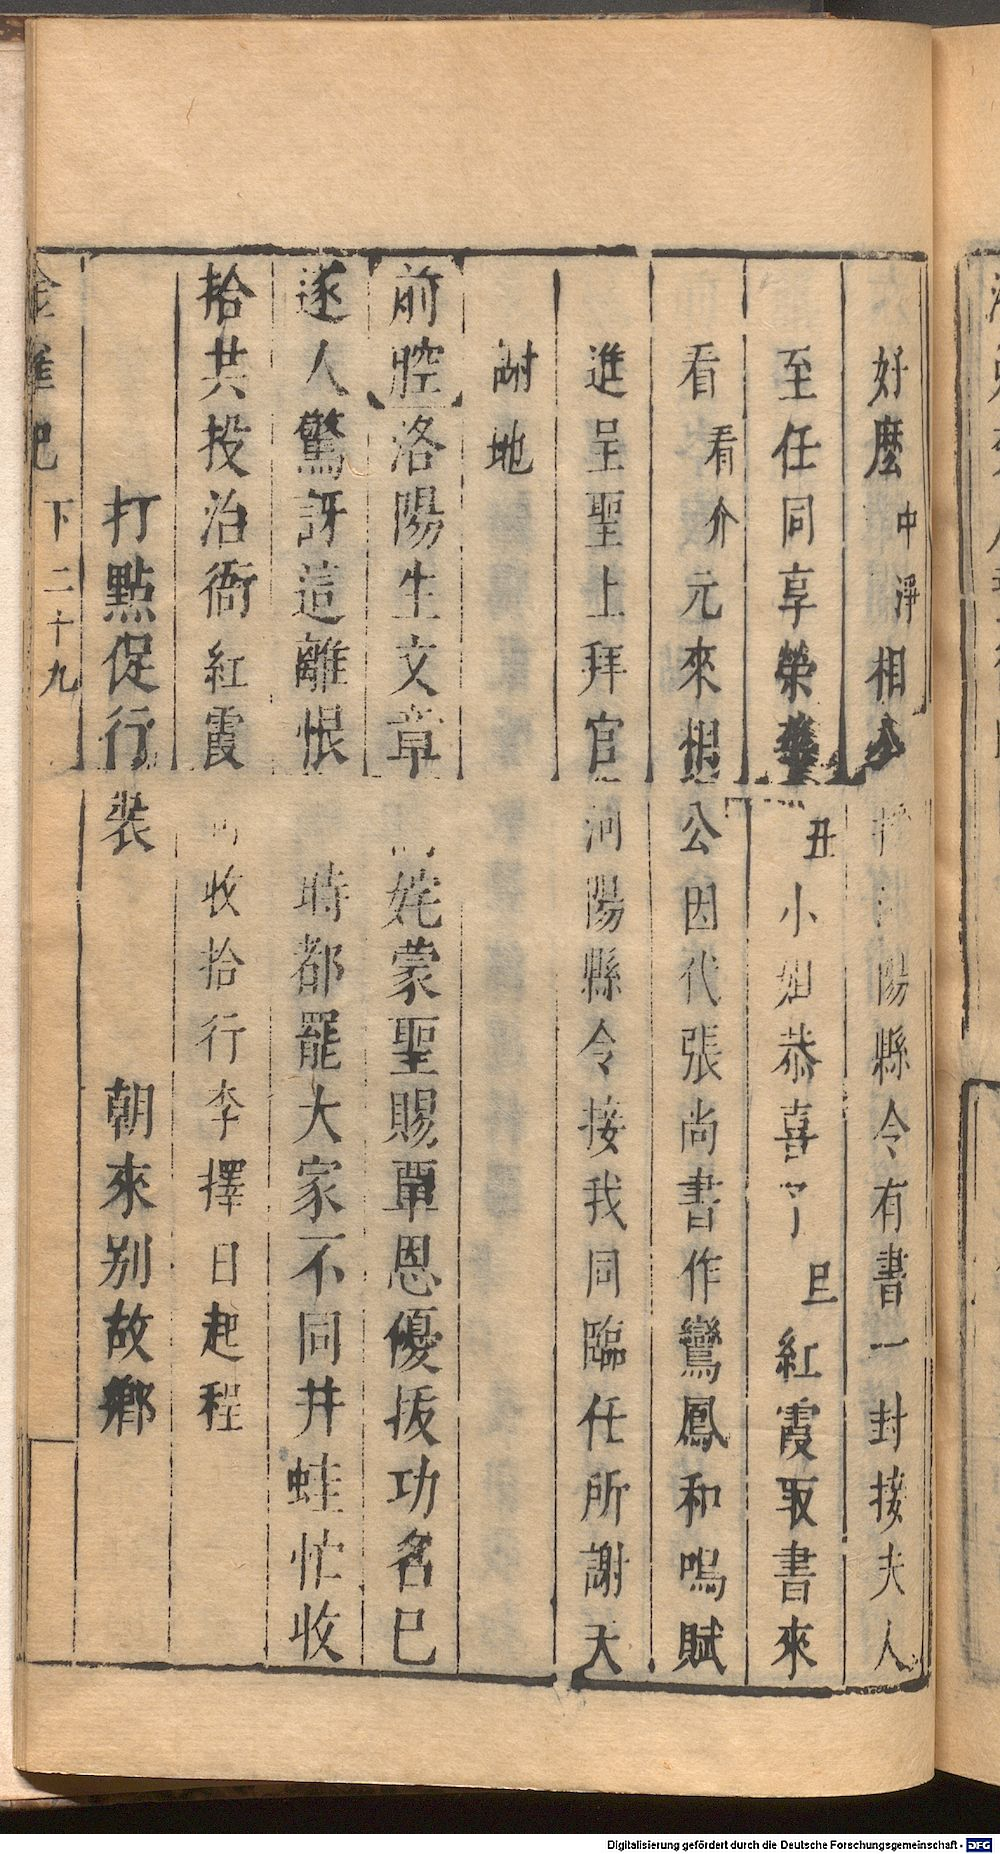 好麼中淨相公陽縣令有書一封接夫人
至任同享榮華丑小姐恭喜了旦紅霞取書來
看看介元來相公因代張尚書作鸞鳳和鳴賦
進呈聖上拜官河陽縣令接我同臨任所謝天
謝地
前腔洛陽生文章姹蒙聖賜覃恩優拔功名已
遂人驚訝這離恨時都罷大家不同井蛙忙收
拾共投治衙紅霞收拾行李擇日起程
打點促行裝 朝來别故鄉
金雀記 下 二十九
Digitalisierung gefördert durch die Deutsche Forschungsgemeinschaft - DFG